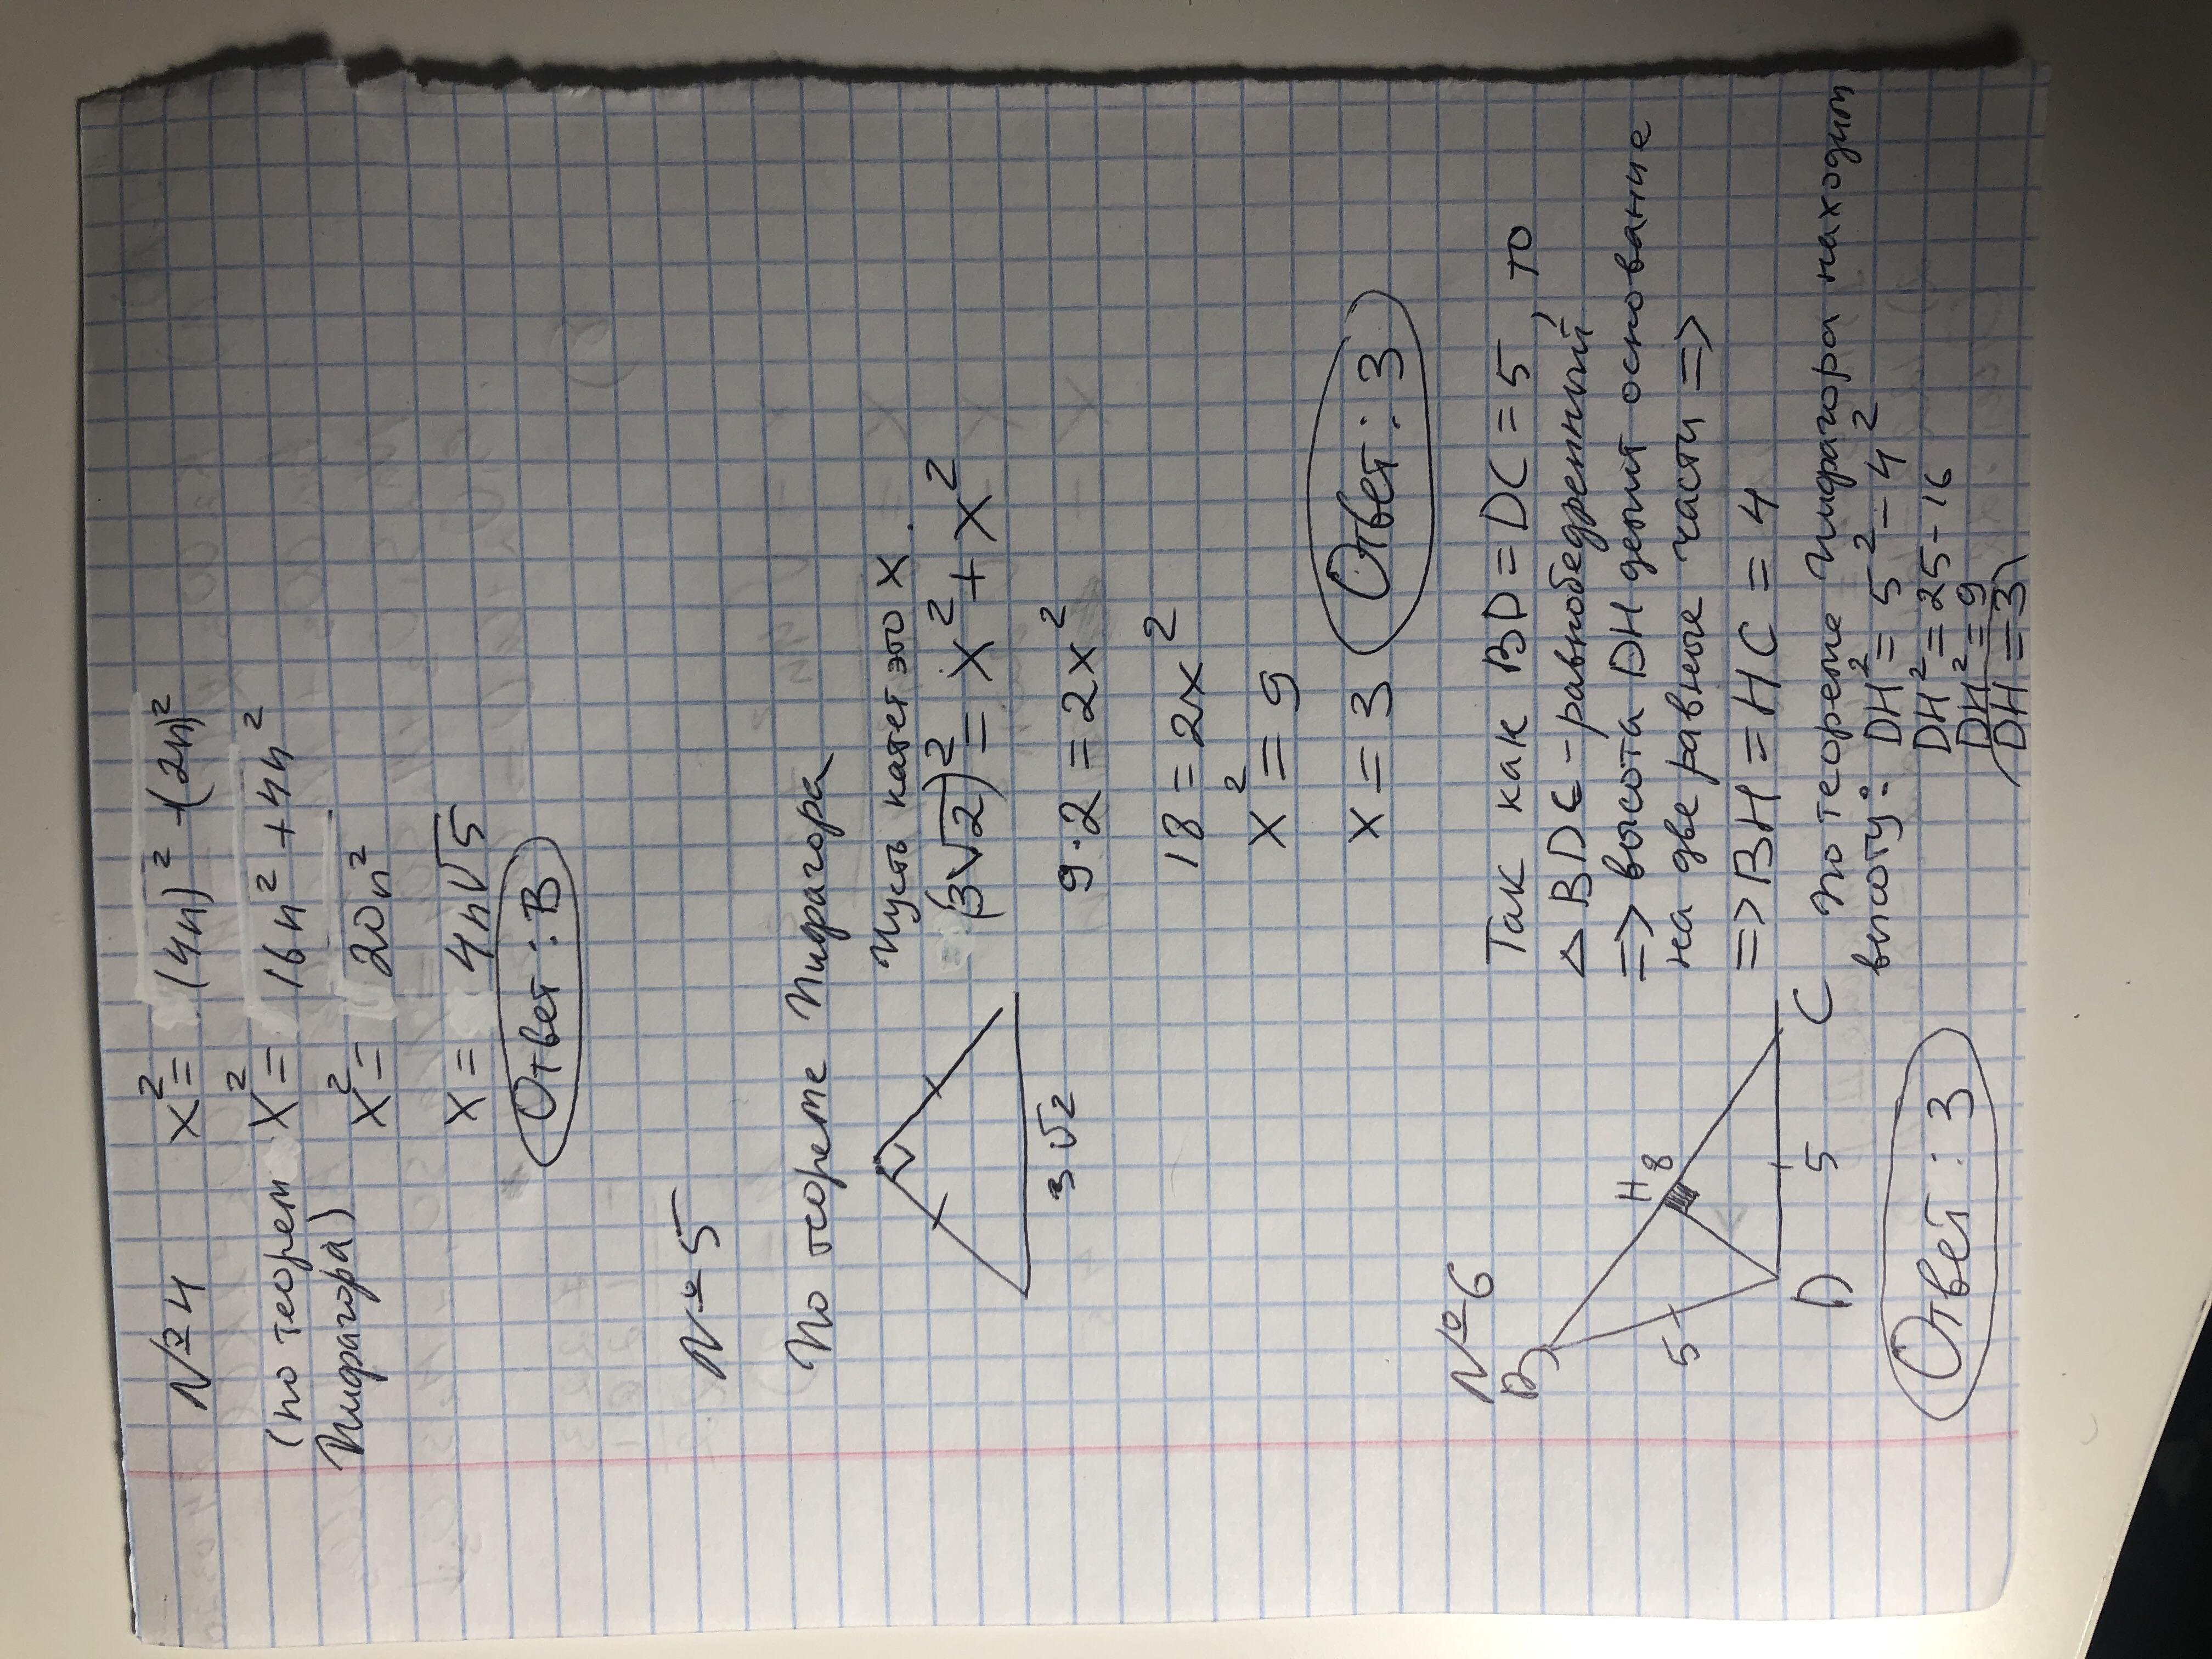 №4 x² = (4n)² + (2n)²
(по теорем x² = 16n² + 4n²
Пифагора) x² = 20n²
x = 4n√5
Ответ: В
№5
По теореме Пифагора
Пусть катет это x.
(3√2)² = x² + x²
9·2 = 2x²
3√2
18 = 2x²
x² = 9
x = 3 Ответ: 3
№6
Так как BD = DC = 5, то
B
△ BDC - равнобедренный
=> высота DH делит основание
H
8
5
на две равные части =>
=> BH = HC = 4
D 5 C
По теореме Пифагора находим
высоту: DH² = 5² - 4²
DH² = 25 - 16
DH² = 9
DH = 3
Ответ: 3